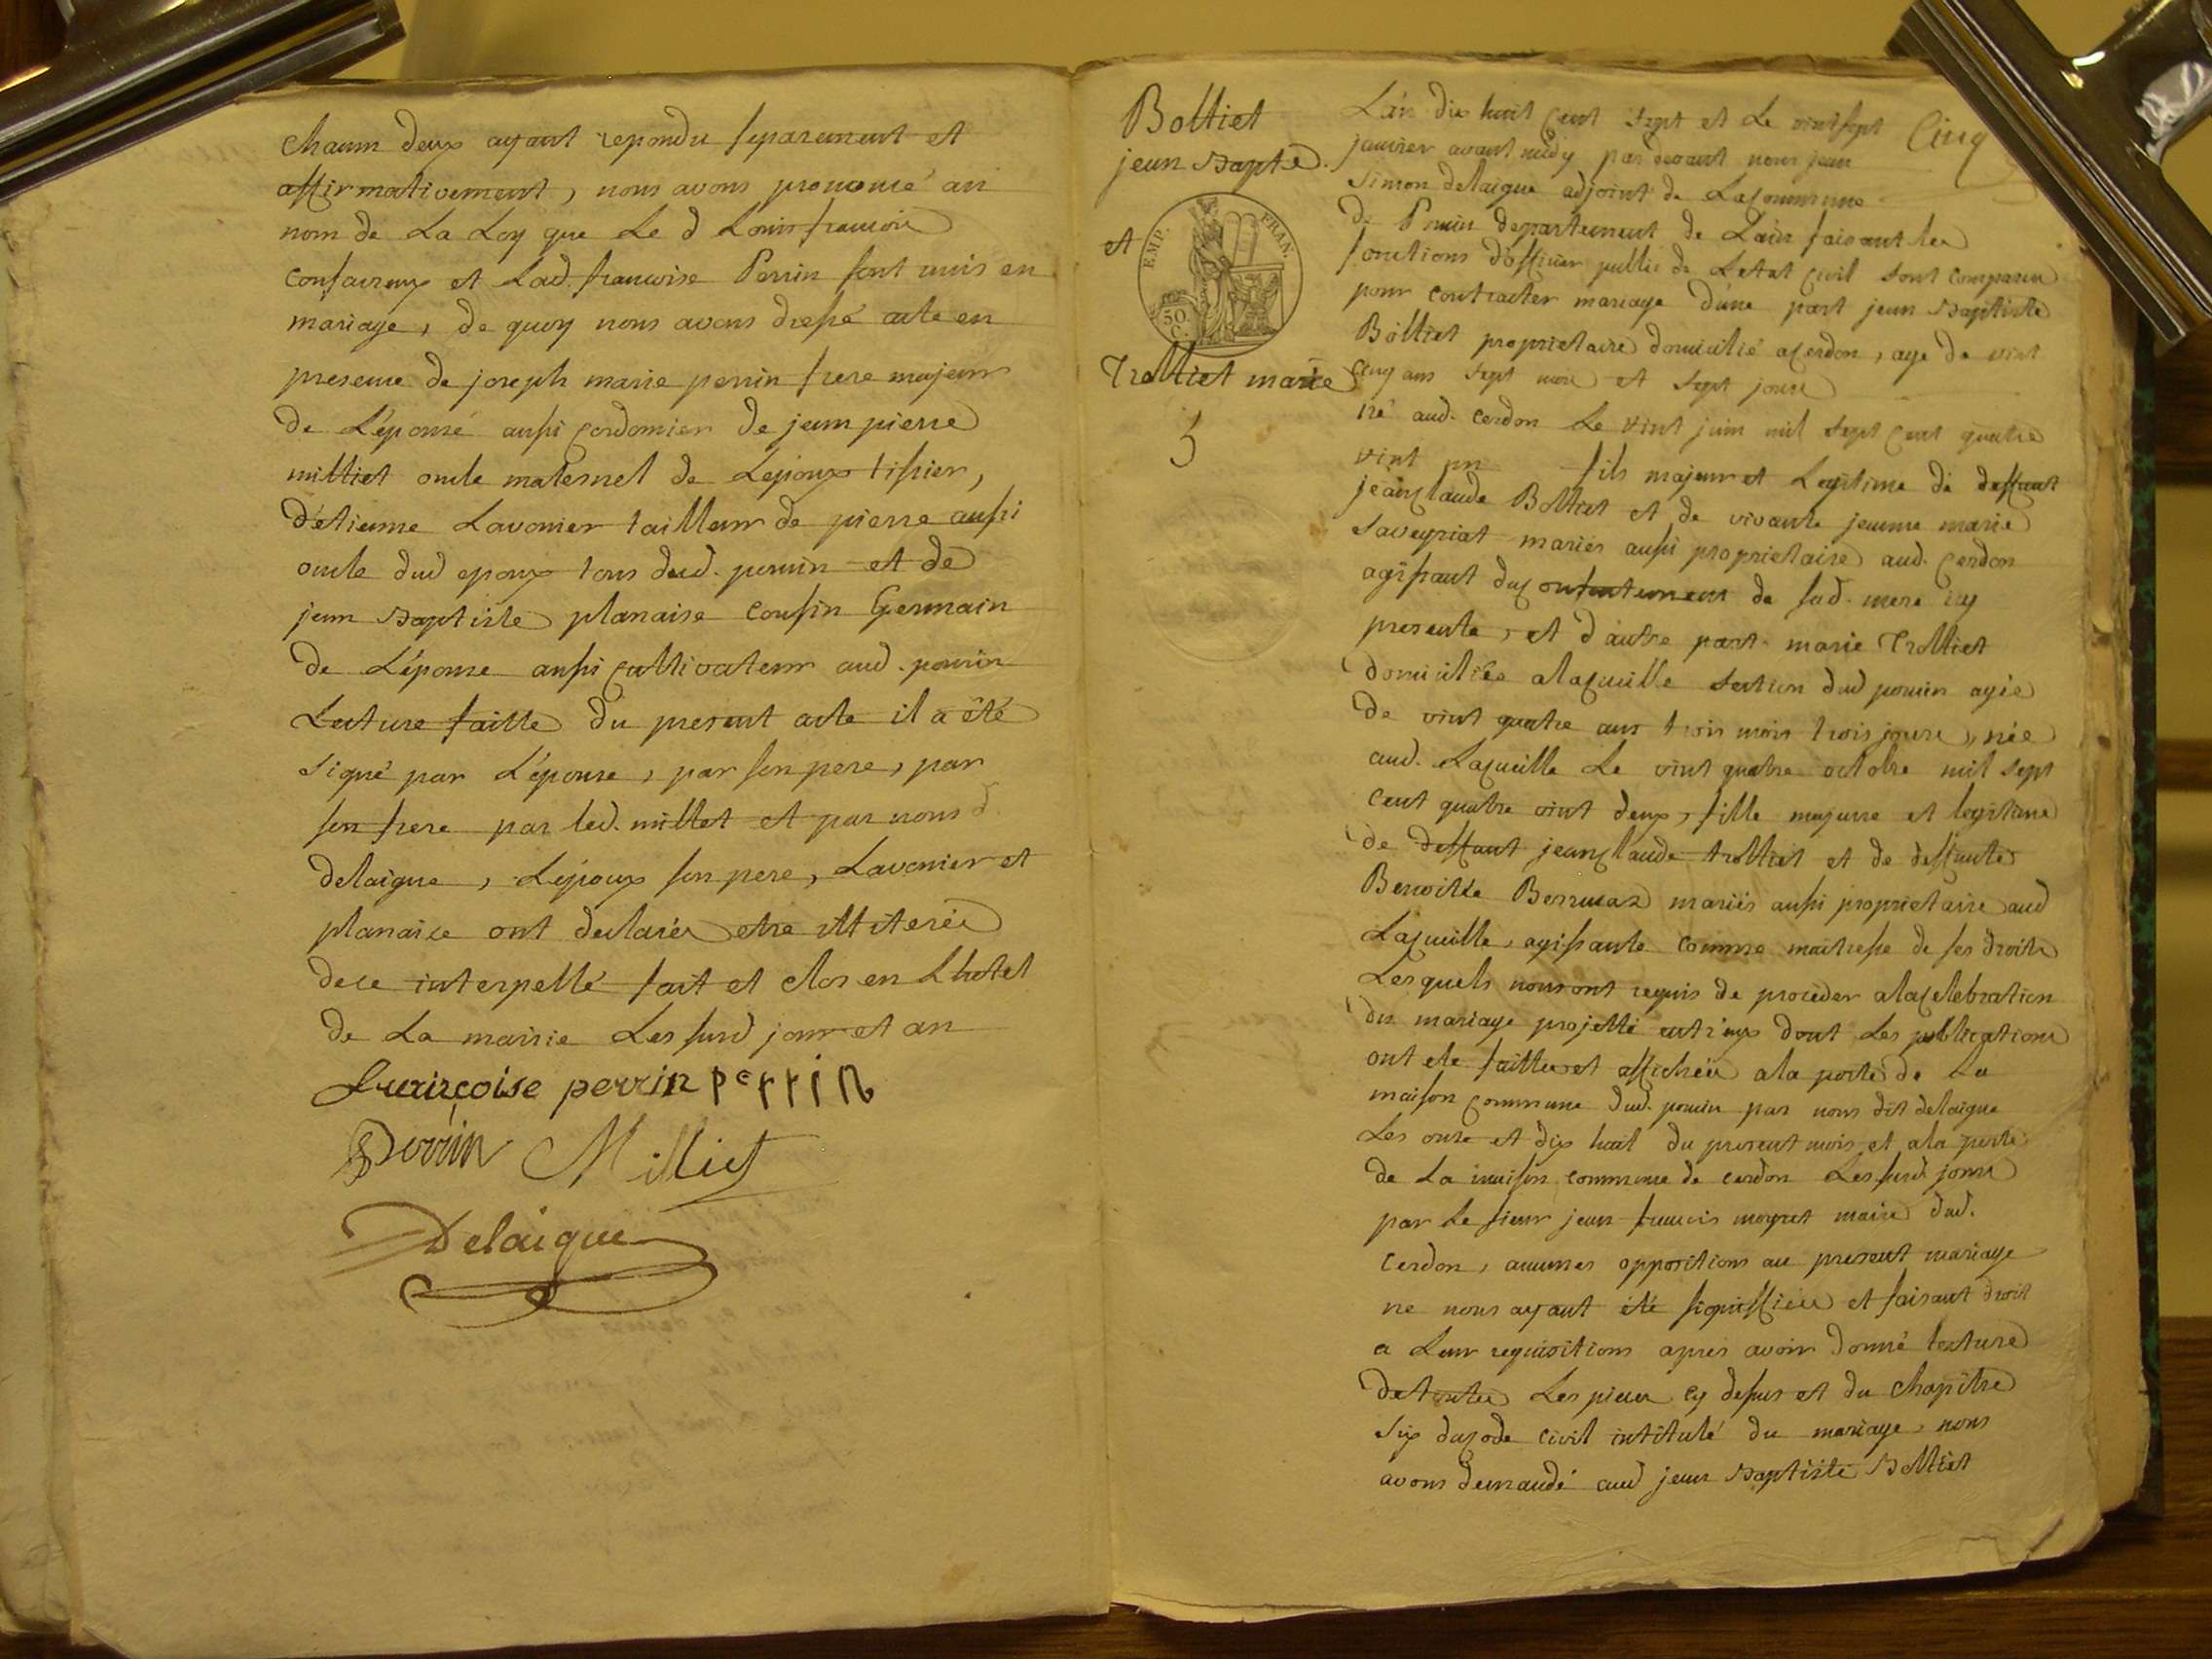 chacun deux ayant repondu separement et
affirmativement, nous avons prononcé au
nom de La Loy que Le d Louis francois
Confavreux et Lad. francoise Perrin sont unis en
mariage, de quoy nous avons dressé acte en
presence de joseph marie perrin frere majeur
de L'épouse aussi cordonnier de jean pierre
milliet oncle maternel de Lepoux tissier,
d'etienne Lavonier tailleur de pierre aussi
oncle dud epoux tous dud. poncin et de
jean Baptiste planaise cousin Germain
de L'épouse aussi cultivateur aud. poncin
Lecture faitte du present acte il a été
signé par L'épouse, par son pere, par
son frere par led. millet et par nous d.
delaigue, L'epoux son pere, Lavonier et
planaise ont declarés etre illiterés
dece interpellé fait et clos en Lhotel
de La mairie Les susd jour et an
francoise perrin perrin
Perrin Milliet
Delaigue
Bolliet
jean Bapte.
et
EMP. FRAN.
50
C.
Trolliet marie
5
Cinq
L'an dix huit cent sept et Le vint sept
janvier avant midy par devant nous jean
Simon delaigue adjoint de La commune
de Poncin departement de L'ain faisant les
fonctions d'officier public de L'etat civil sont comparus
pour contracter mariage d'une part jean Baptiste
Bolliet proprietaire domicilié a cerdon, age de vint
cinq ans sept mois et sept jours
né aud. cerdon Le vint juin mil sept cent quatre
vint un fils majeur et Legitime de deffunt
jeanclaude Bolliet et de vivante jeanne marie
Saveyriat mariés aussi proprietaire aud. cerdon
agissant du consentement de sad. mere icy
presente, et d'autre part marie Trolliet
domiciliée a lacueille section dud poncin agée
de vint quatre ans trois mois trois jours, née
aud. Lacueille Le vint quatre octobre mil sept
cent quatre vint deux, fille majeure et legitime
de deffunt jeanclaude trolliet et de deffunte
Benoitte Berruaz mariés aussi proprietaire aud
Lacueille, agissante comme maitresse de ses droits
Lesquels nous ont requis de proceder a la celebration
du mariage projetté entr'eux dont Les publications
ont ete faittes et affichées a la porte de La
maison commune dud. poncin par nous dit delaigue
Les onze et dix huit du present mois et a la porte
de La maison commune de cerdon Les susd jours
par Le sieur jean francois moyret maire dud.
Cerdon, aucunes oppositions au present mariage
ne nous ayant été signiffiées et faisant droit
a Leur requisitions apres avoir donné lecture
de toutes Les pieces cy dessus et du chapitre
six du code civil intitulé du mariage, nous
avons demandé aud jean Baptiste Bolliet